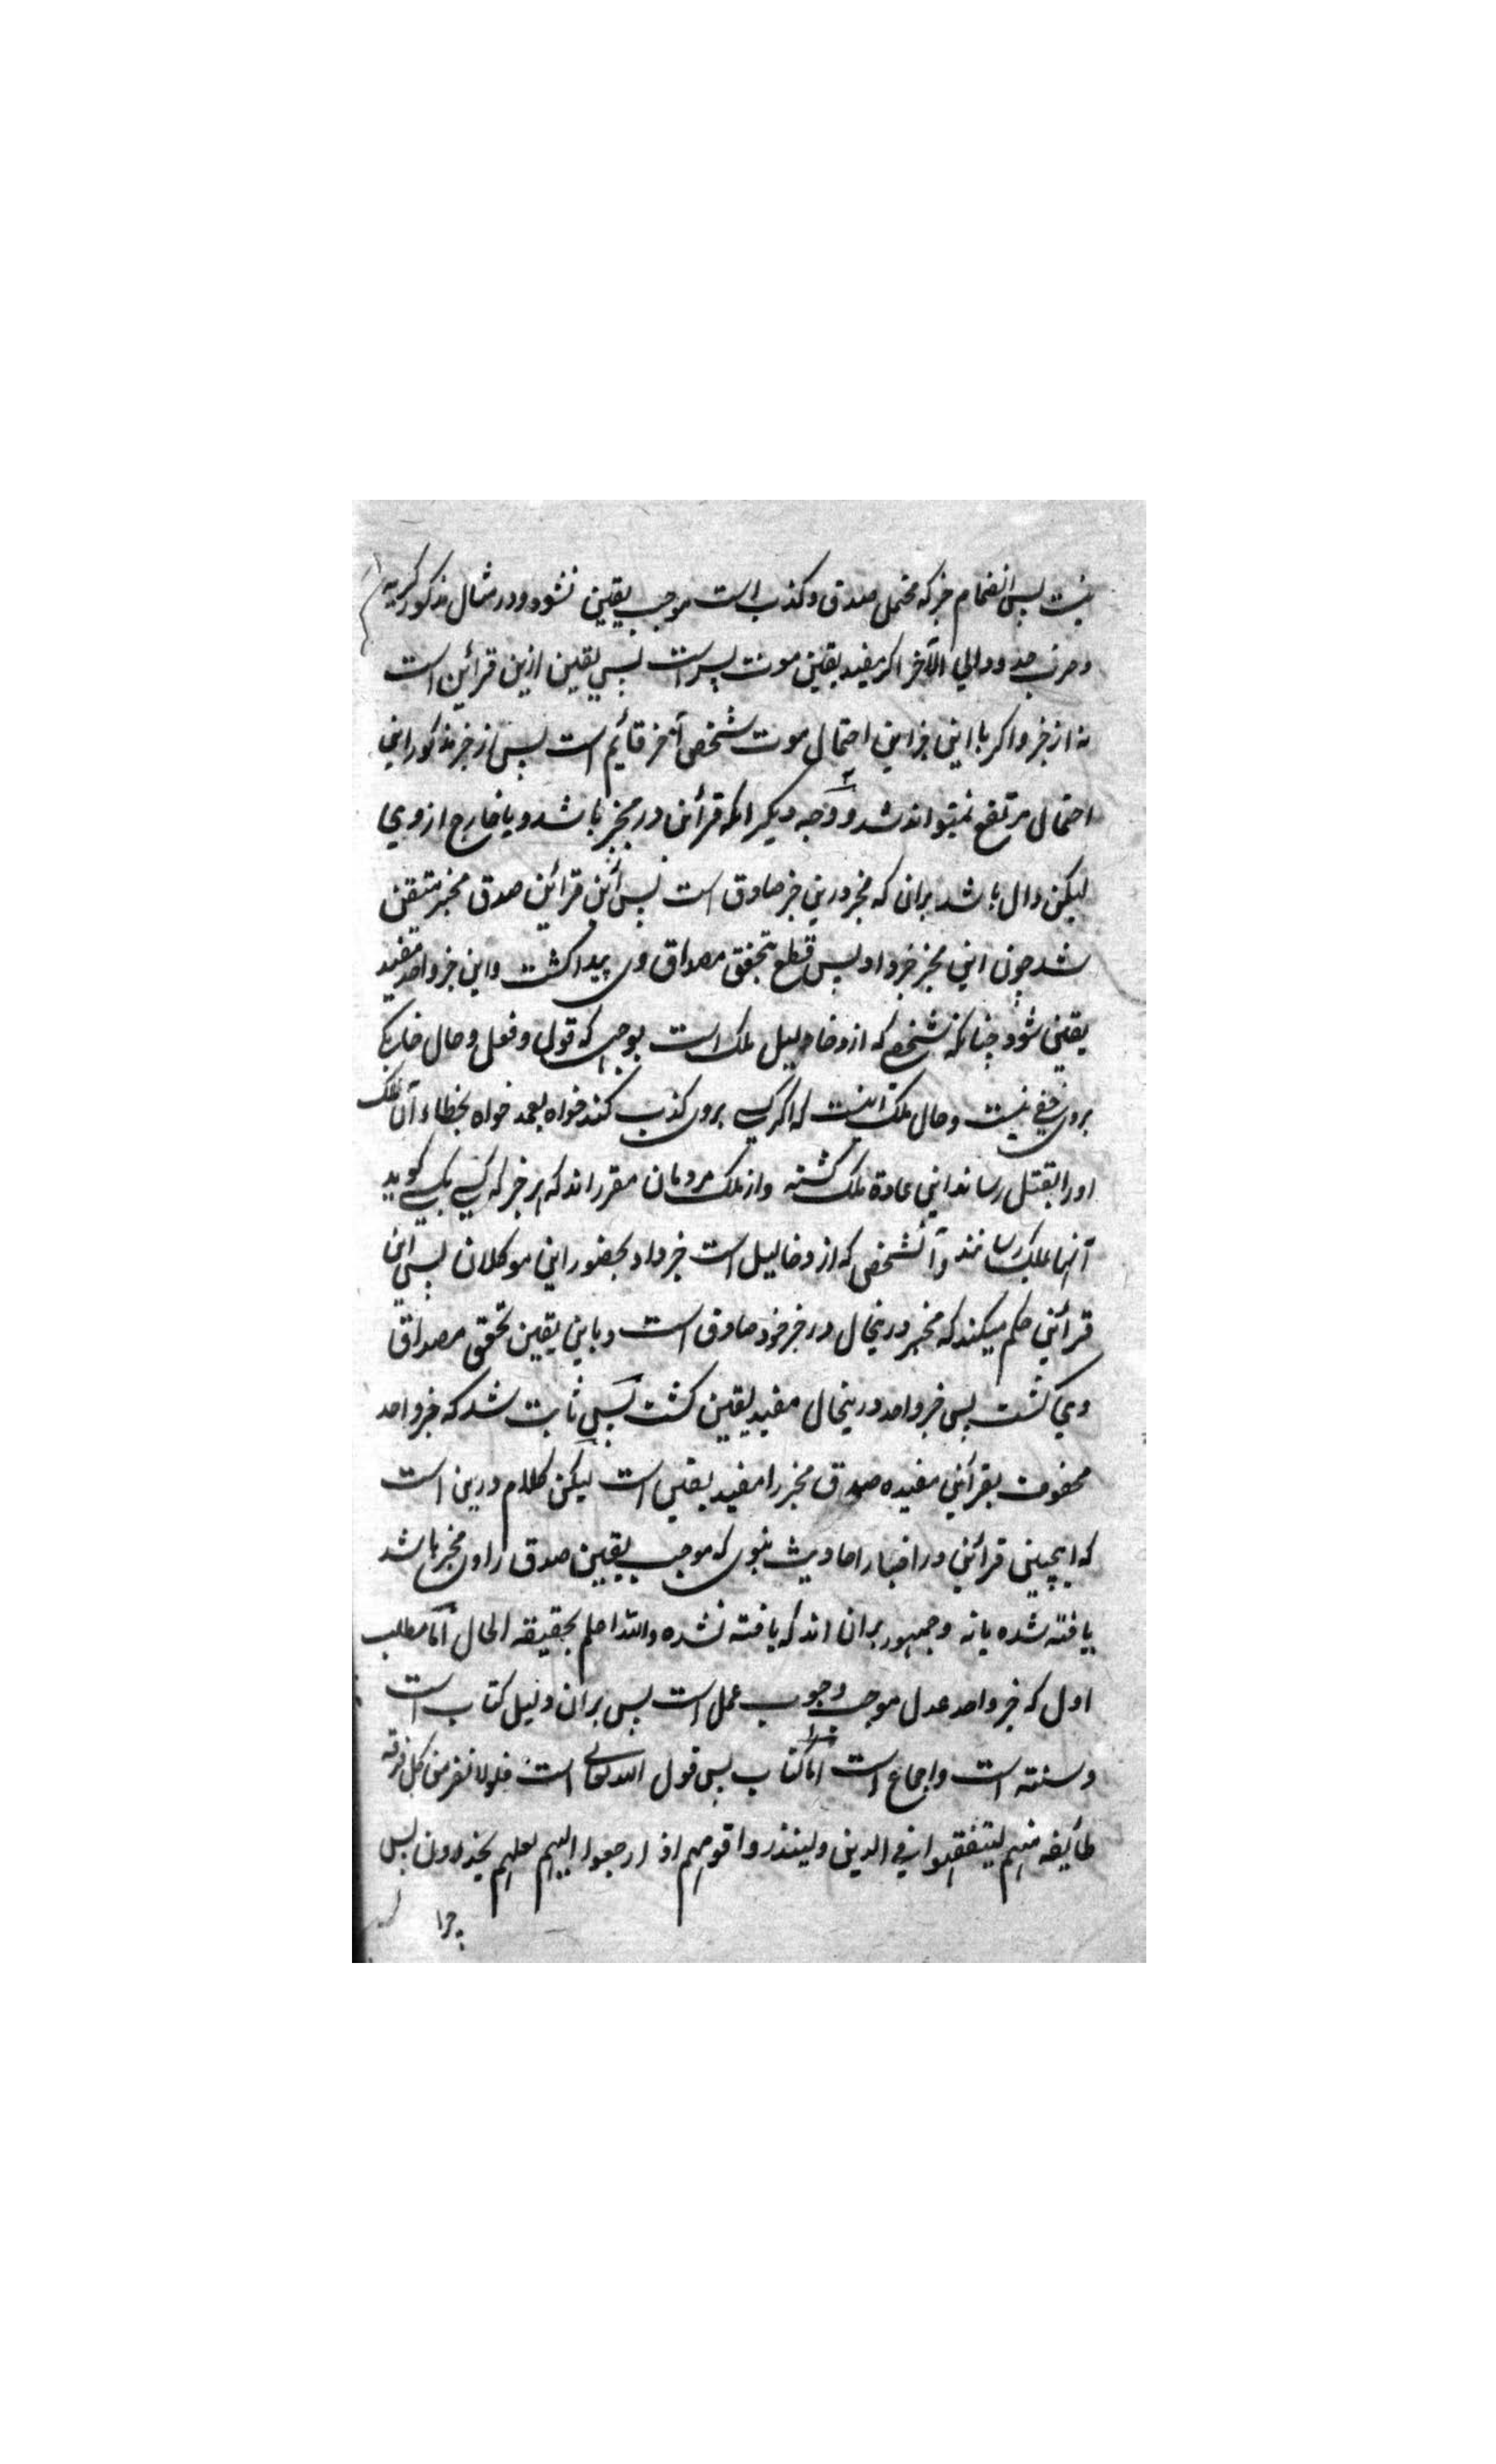 نیست پس انضمام خبر که محتمل صدق و کذب است موجب یقین نشود و در مثال مذکور گریه
و ضرب خدود الی الآخر اگر مفید یقین موت پسر است پس یقین ازین قرائن است
نه از خبر و اگر با این قراین احتمال موت شخص آخر قائیم است پس از خبر مذکور این
احتمال مرتفع نمیتواند شد و وجه دیگر انکه قرأئن در مخبر باشد و یا خارج از وی
لیکن دال باشد بران که مخبر درین خبر صادق است پس ازین قرائین صدق مخبر متیقن
شد چون این مخبر خبر داد پس قطع بتحقق مصداق وی پیدا گشت و این خبر واحد مفید
یقین شود چنانکه شخصی که از دخالیل ملک است بوجهی که قول و فعل و حال خانگی
بروی خفی نیست و حال ملک اینست که اگر کسی بروی کذب کند خواه بعمد خواه بخطاء آن ملک
اورا بقتل رساند این عادة ملک گشته و از ملک مردمان مقرر اند که هر خبر که کسی بکسی گوید
آنها بملک رسانند و آنشخص که از دخالیل است خبر داد بحضور این موکلان پس این
قرأئن حکم میکند که مخبر درینحال در خبر خود صادق است و باین یقین تحقق مصداق
وی گشت پس خبر واحد درینحال مفید یقین گشت پس ثابت شد که خبر واحد
محفوف بقرأئن مفیده صدق مخبر را مفید یقین است لیکن کلام درین است
که اینچنین قرأئن در اخبار احادیث نبوی که موجب یقین صدق راوی مخبر باشد
یافته شده یا نه و جمهور بران اند که یافته نشده والله اعلم بحقیقه الحال اما مطلب
اول که خبر واحد عدل موجب وجوب عمل است پس بران دلیل کتاب است
و سنته است و اجماع است اما کتاب پس قول الله تعالی است فلولا نفر من کل فرقه
طایفه منهم لیتفقهوا فی الدین ولینذروا قومهم اذا رجعوا الیهم لعلهم یحذرون پس